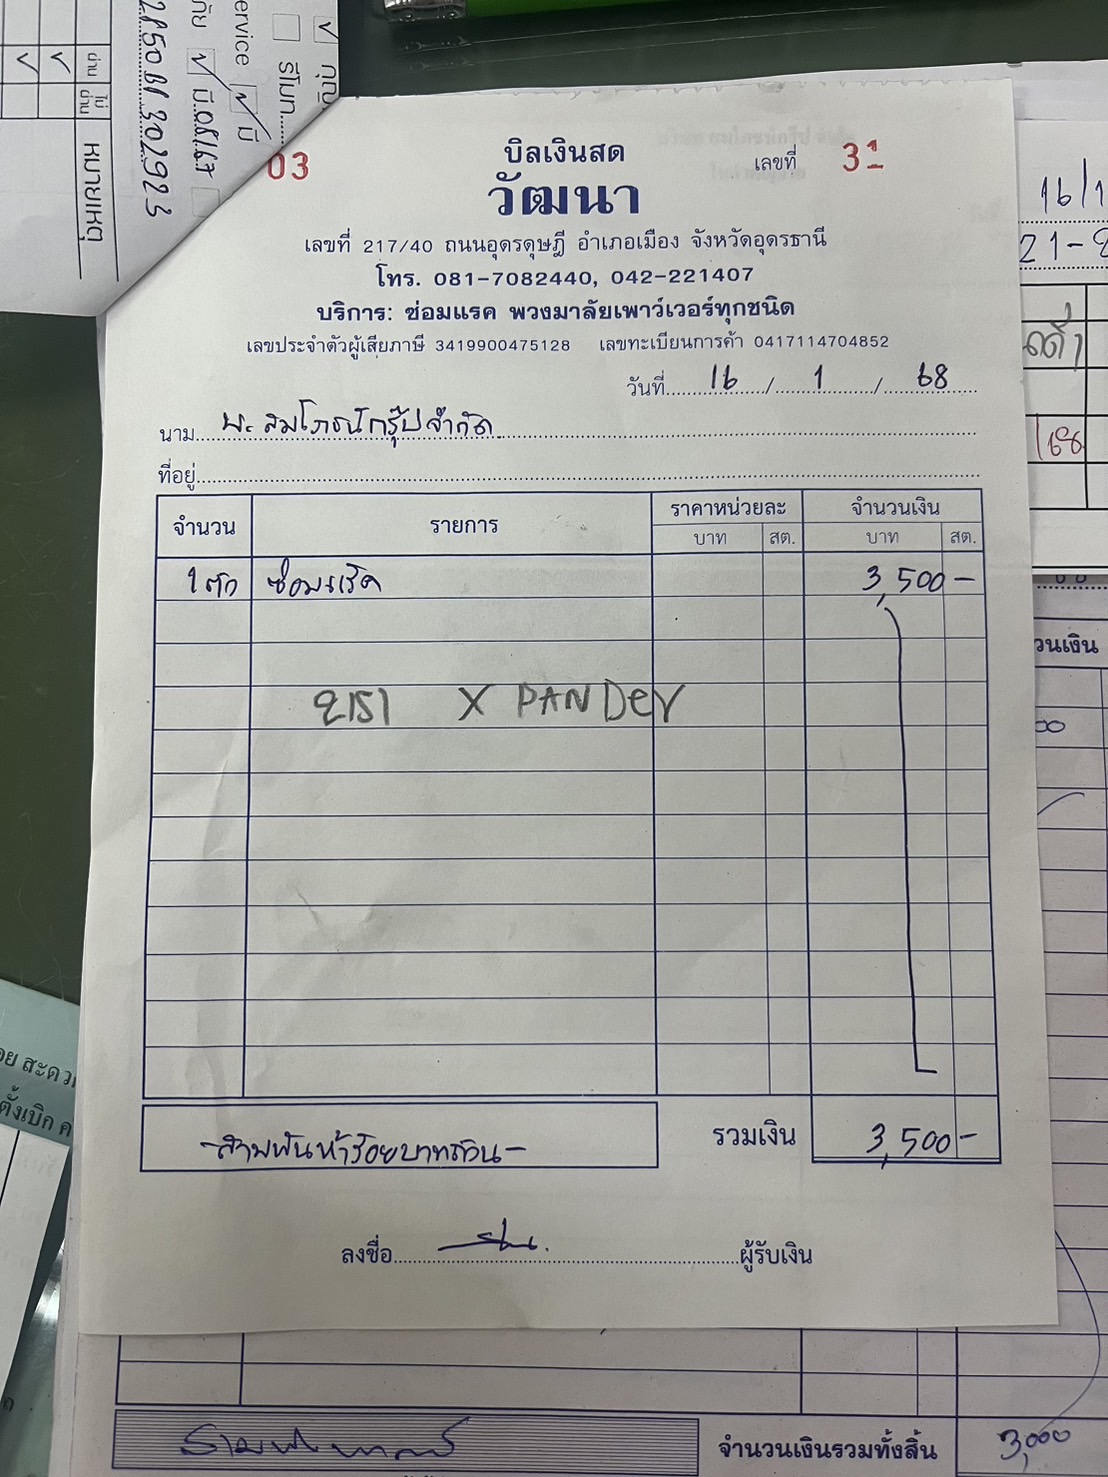 กุญ
รีโมท......
ervice มี
ภัย มี.08/67
2850BA302923
ผ่าน ไม่ผ่าน หมายเหตุ
03
บิลเงินสด
เลขที่ 31
วัฒนา
เลขที่ 217/40 ถนนอุดรดุษฎี อำเภอเมือง จังหวัดอุดรธานี
โทร. 081-7082440, 042-221407
บริการ: ซ่อมแรค พวงมาลัยเพาว์เวอร์ทุกชนิด
เลขประจำตัวผู้เสียภาษี 3419900475128 เลขทะเบียนการค้า 0417114704852
วันที่ 16 / 1 / 68
นาม บ. สมโภชน์กรุ๊ปจำกัด
ที่อยู่
จำนวน รายการ ราคาหน่วยละ จำนวนเงิน
บาท สต. บาท สต.
1 ตัว ซ่อมแร็ค 3,500 -
2151 X PANDer
-สามพันห้าร้อยบาทถ้วน- รวมเงิน 3,500 -
ลงชื่อ ผู้รับเงิน
16/1
21-2
/68
วนเงิน
00
อย สะดว
ตั้งเบิก ค
จำนวนเงินรวมทั้งสิ้น 3,000